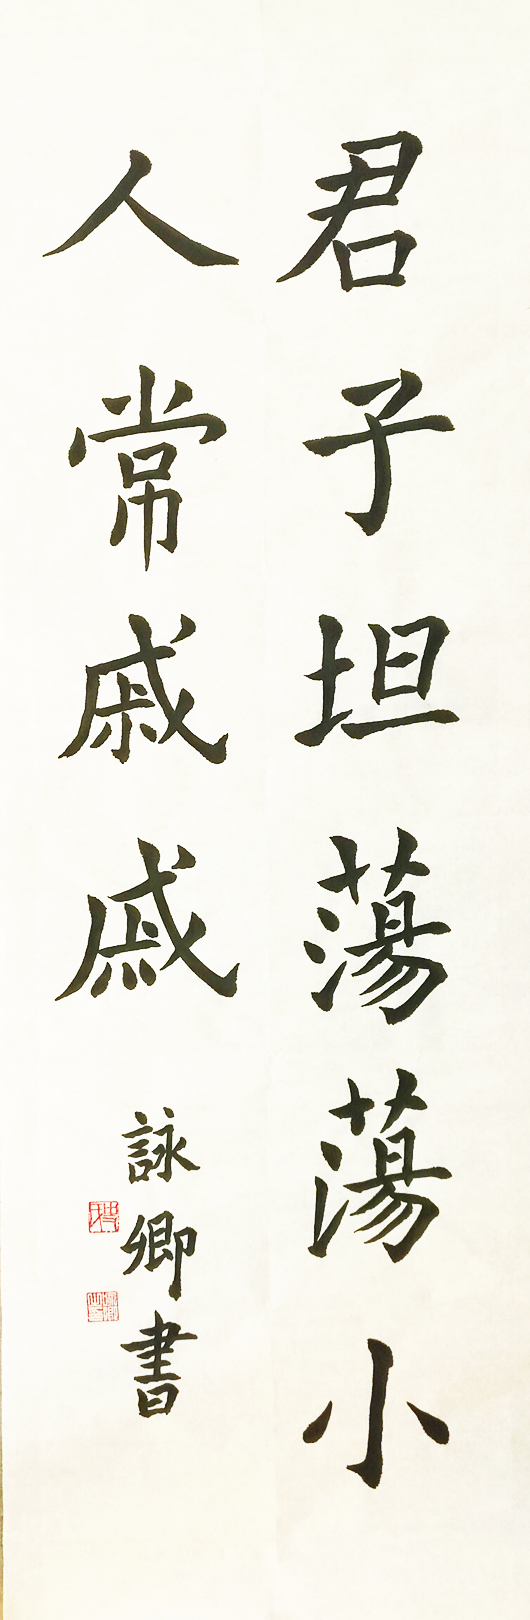 君子坦蕩蕩小
人常戚戚
詠卿書